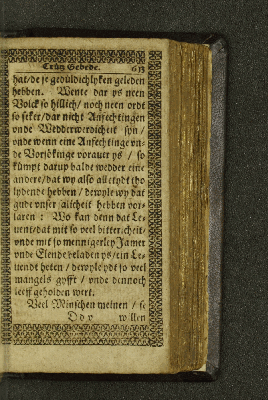 Crütz Gebede. 613
hat/de se gedüldichlyken geleden
hebben. Wente dar ys neen
Volck so hillich/ noch neen orde
so seker/dar nicht Anfechtingen
vnde Wedderwerdicheit syn/
vnde wenn eine Anfechtinge vn-
de Vorsökinge vörauer ys / so
kümpt darup balde wedder eine
andere/dat wy also alletydt tho
lydende hebben / dewyle wy dat
gude vnser salicheit hebben vor-
laren : Wo kan denn dat Le-
uent/dat mit so veel bittericheit/
vnde mit so mennigerley Jamer
vnde Elende beladen ys/ein Le-
uendt heten / dewyle ydt so veel
mangels gyfft / vnde dennoch
leeff geholden wert.
Veel Minschen meinen / se
D d v wöllen